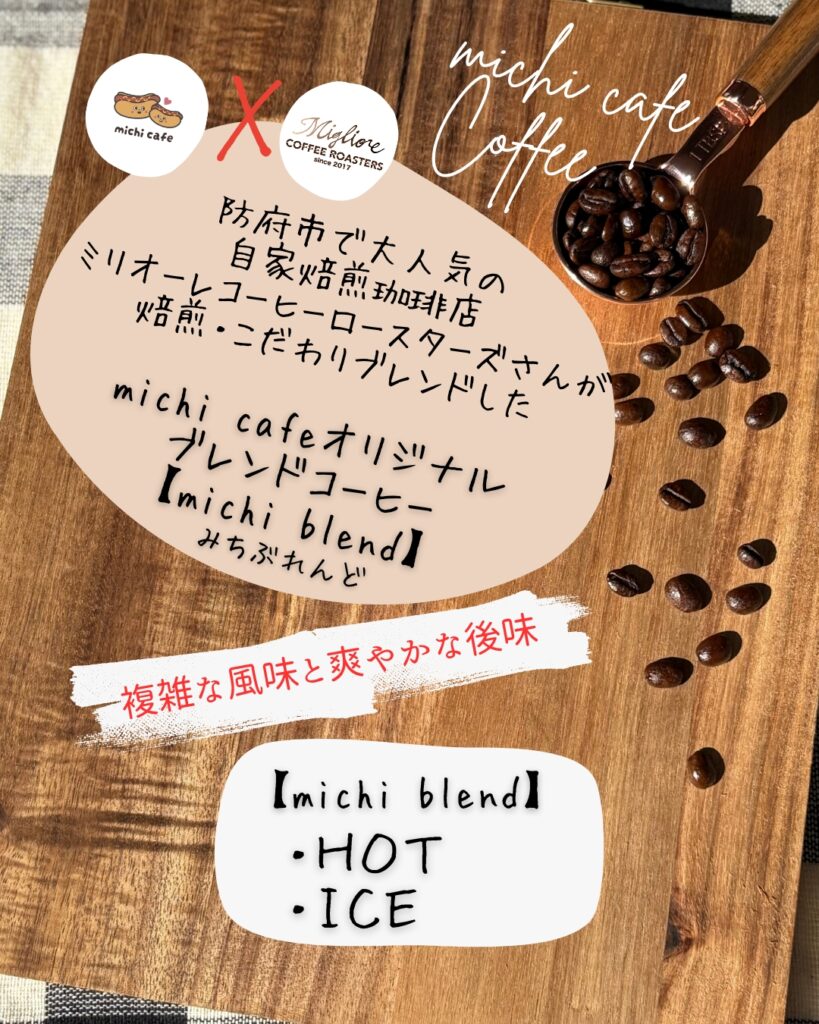 michi cafe
Coffee
michi cafe
X
Migliore
COFFEE ROASTERS
since 2017
防府市で大人気の
自家焙煎珈琲店
ミリオーレコーヒーロースターズさんが
焙煎・こだわりブレンドした
michi cafeオリジナル
ブレンドコーヒー
【michi blend】
みちぶれんど
複雑な風味と爽やかな後味
【michi blend】
・HOT
・ICE